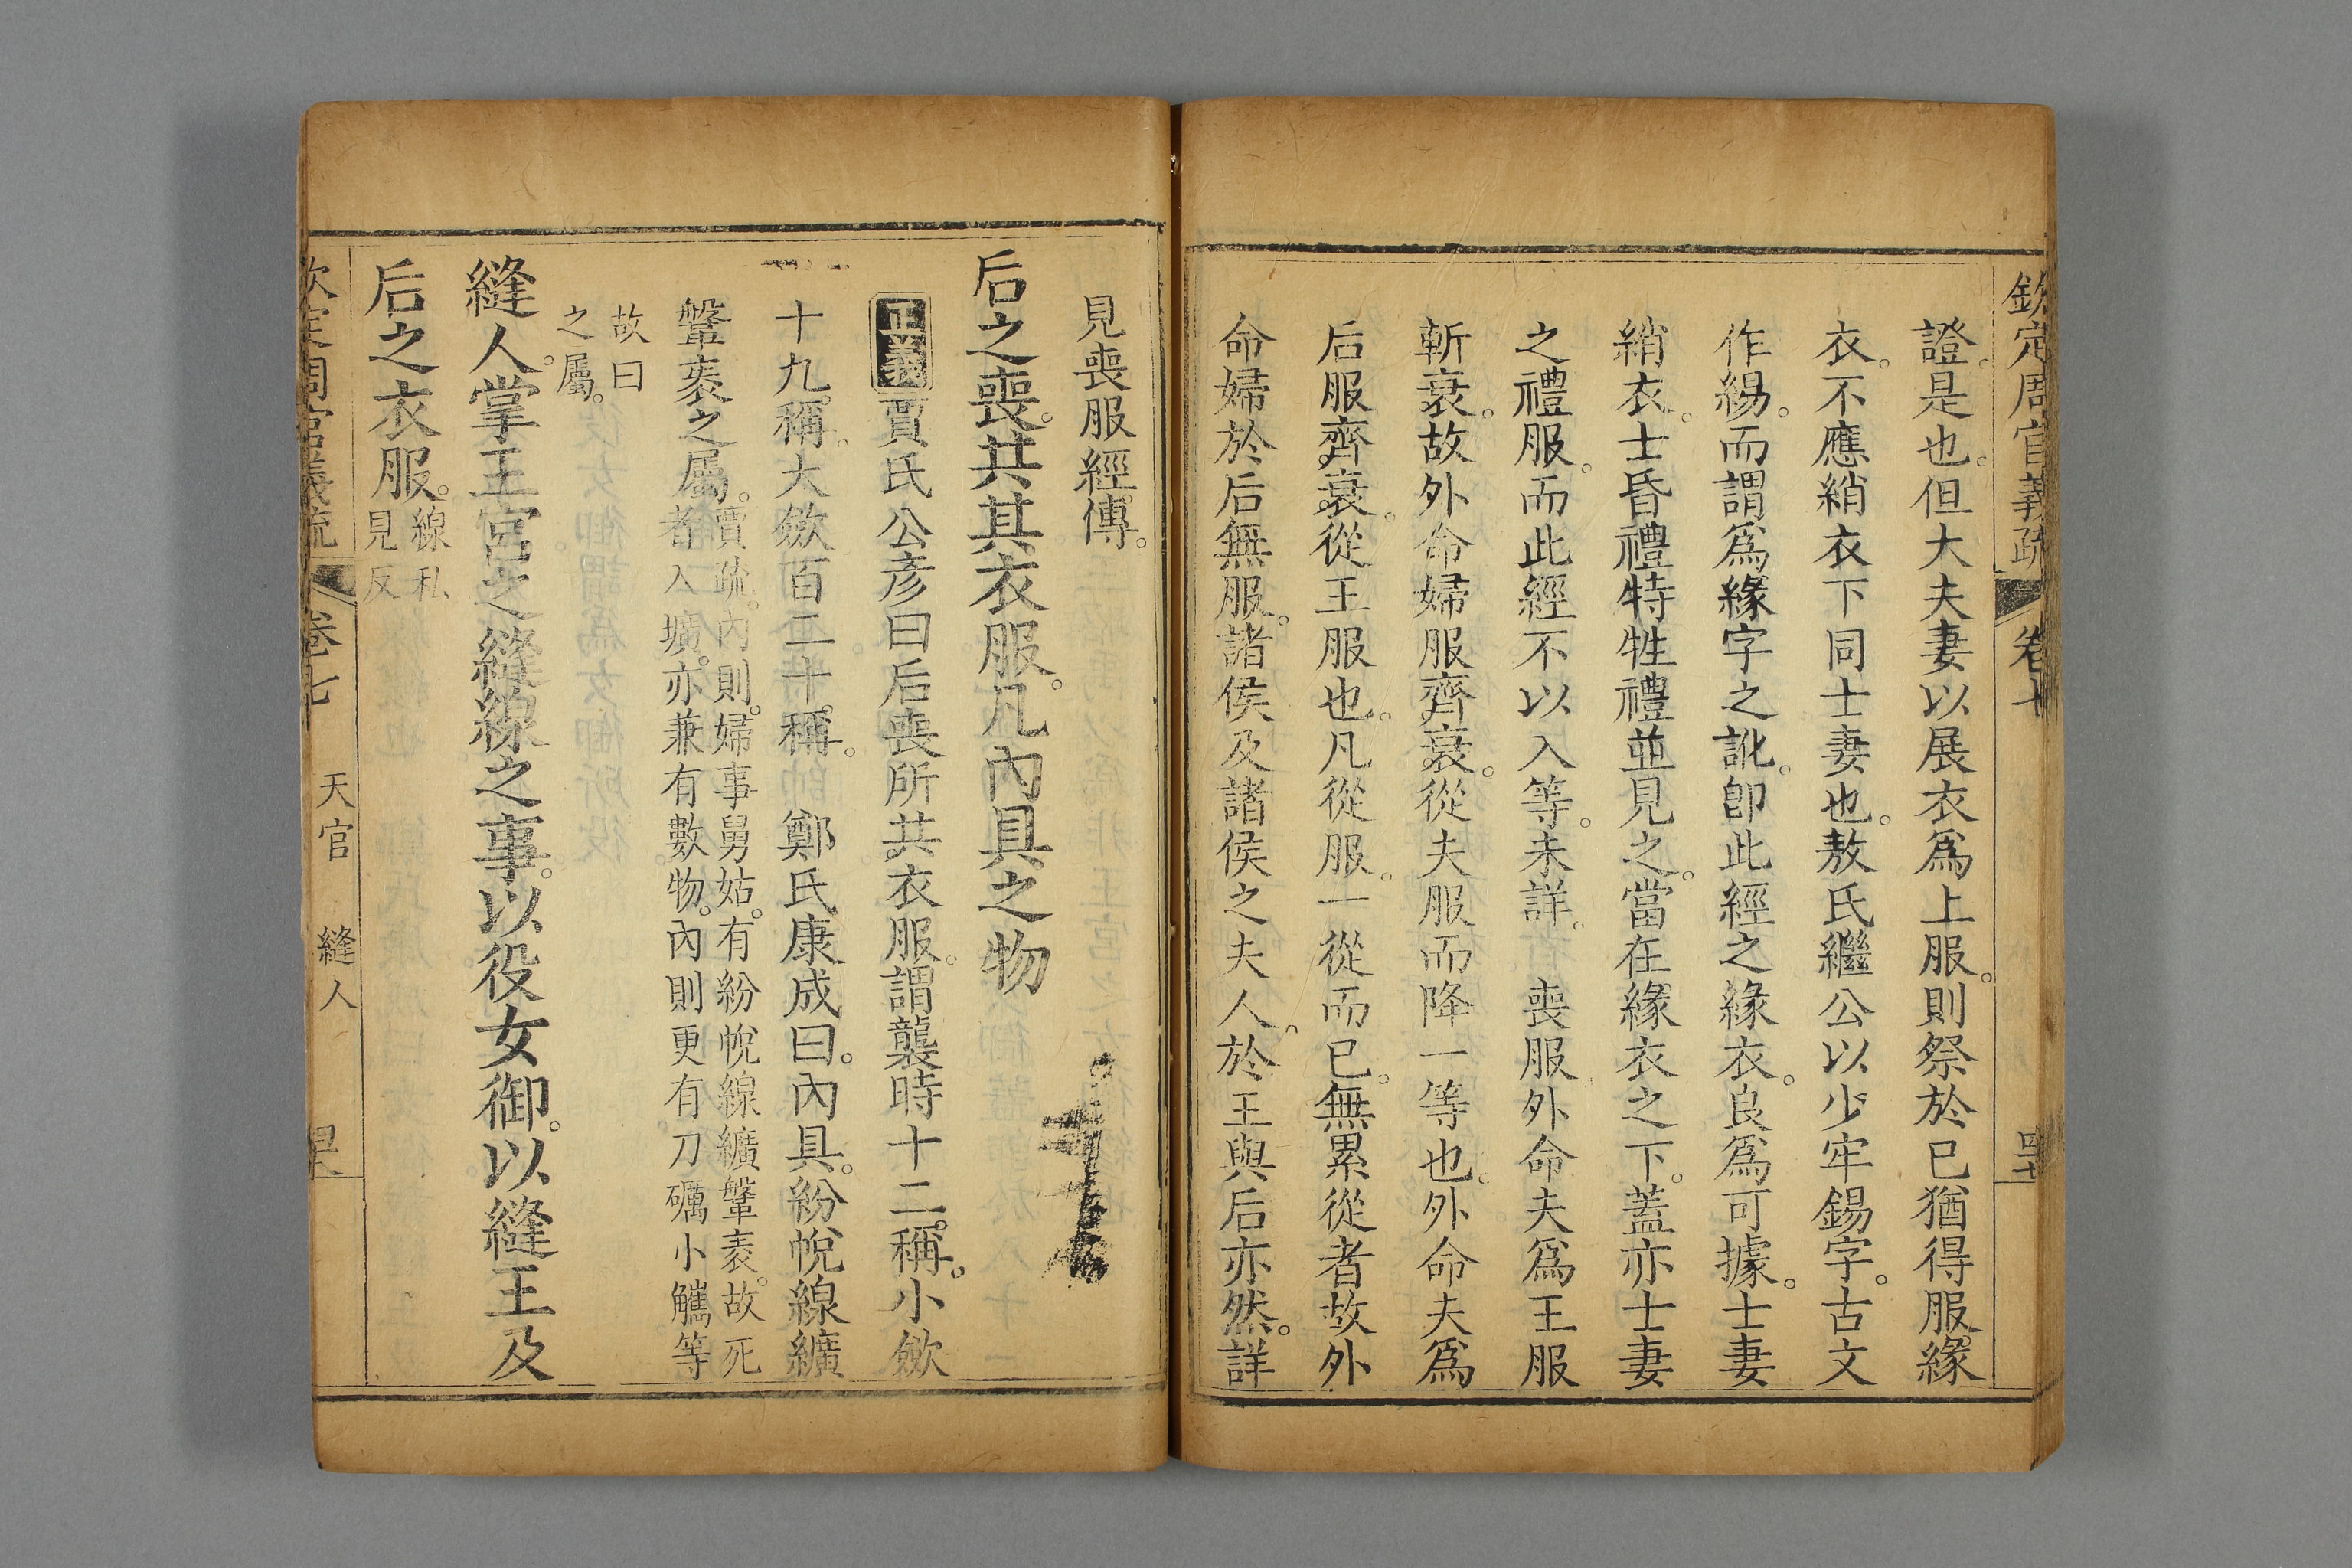 欽定周官義疏 卷七
證。是也。但大夫妻以展衣爲上服。則祭於已猶得服緣
衣。不應綃衣下同士妻也。敖氏繼公以少牢錫字。古文
作緆。而謂爲緣字之訛。卽此經之緣衣。良爲可據。士妻
綃衣。士昏禮特牲禮並見之。當在緣衣之下。蓋亦士妻
之禮服。而此經不以入等。未詳。 喪服外命夫爲王服
斬衰。故外命婦服齊衰。從夫服而降一等也。外命夫爲
后服齊衰。從王服也。凡從服。一從而已。無累從者。故外
命婦於后無服。諸侯及諸侯之夫人。於王與后亦然。詳
見喪服經傳。
后之喪。共其衣服。凡內具之物
正義 賈氏公彥曰后喪所共衣服。謂襲時十二稱。小斂
十九稱。大斂百二十稱。 鄭氏康成曰。內具。紛帨線纊
鞶袠之屬。賈疏。內則。婦事舅姑。有紛帨線纊鞶袠。故死
者入壙。亦兼有數物。內則更有刀礪小觿等
故曰
之屬。
縫人。掌王宮之縫線之事。以役女御。以縫王及
后之衣服。線私
見反
欽定周官義疏 卷七 天官 縫人